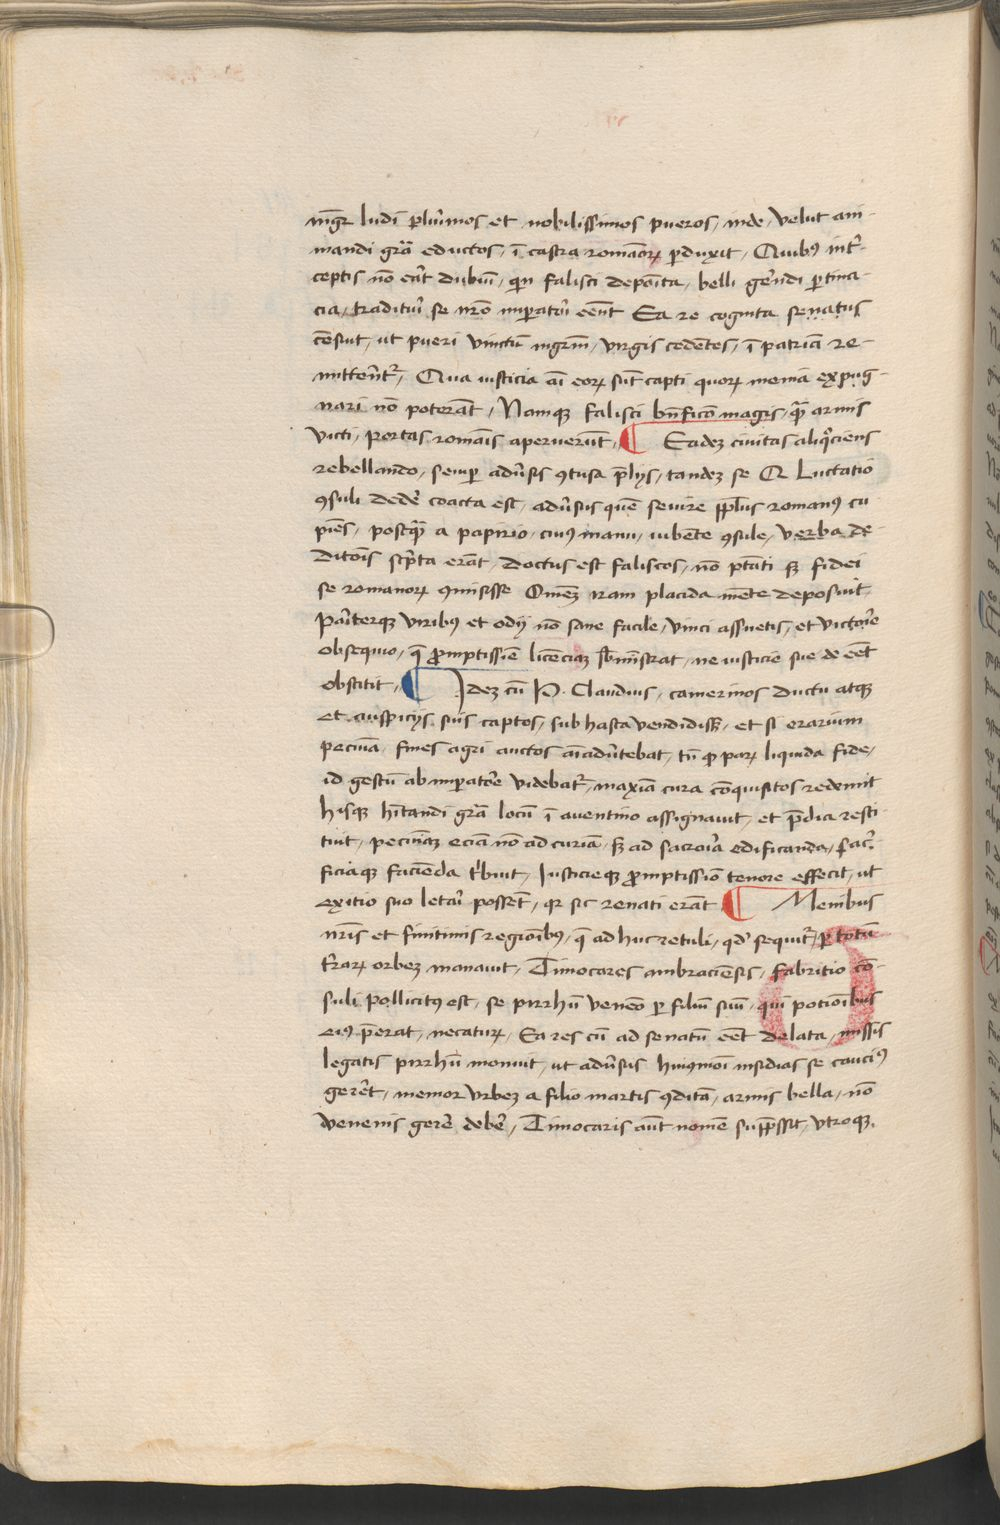 mgr̄ ludi pluīmos et nobilissimos pueros / inde velut am-
mandi grā̄ eductos / ī castra romāoꝝ pduxit / Quibꝰ int̄-
ceptis nō eāt dubiū / qn falisci deposita / belli gerēdi ptina-
cia / tradituri se nrō impatori eēnt Ea re cognita senatus
cēsuit / ut pueri vinctū mgrm̄ / virgis cedentes / ī patriā re-
mittent̄r / Qua iusticia aī eoꝝ sūt capti quoꝝ menia expug-
nari nō poterāt / Namqꝫ falisci bn̄ficio magis / quā armis
victi / portas romāis aperuerūt / ¶ Eadeꝫ civitas aliqͦciens
rebellando / semp adūsis ꝯtusa plijs / tandeꝫ se Q Luctatio
ꝯsuli dedē coacta est / adūsus quē sevire ppl̄us romanꝰ cu
piēs / postquā a papirio / cuiꝰ manu / iubente ꝯsule / verba de-
ditōis scpta erāt / doctus est faliscos / nō ptāti sꝫ fidei
se romanoꝝ ꝯmisisse Omēꝫ iram placida mēte deposuit
Pariterqꝫ viribus et odij nō sane facile / vinci assuetis / et victorie
obsequio / q̄ promptissīe licēciaꝫ sb̄mīstrat / ne iusticie sue de eēt
obstitit / ¶ Ideꝫ cū P. Claudius / camerinos ductu atqꝫ
et auspicijs suis captos / sub hasta vendidissꝫ / et si erarium
pecunia / fines agri auctos aīadūtebat / tn̄ qͦ paꝝ liquida fide /
id gestū ab impatore videbat̄r / maxīa cura cōquisitos redemit
hisqꝫ hītandi grā̄ locū ī aventino assignauit / et pdia resti
tuit / pecuniaꝫ eciā nō ad curiā / sꝫ ad sacraria edificanda / sacri
ficiaqꝫ faciēda tribuit / Iusticieqꝫ promptissio tenore effecit / ut
exitio suo letari possēt / qꝛ sic renati erāt ¶ Menibus
nr̄is et finitimis regioībus / q̄ ad huc retuli / qd̓ sequit̄r / p totū
t̄raꝝ orbeꝫ manauit / Timocares ambraciensis / fabritio cō-
suli pollicitꝰ est / se pirrhū veneno p filiū suū / qui potionibus
eiꝰ perat / necaturꝝ / Ea res cū ad senatū eēt delata / missis
legatis pirrhū monuit / ut adūsus huiꝰmōi insidias se cauciꝰ
gerēt / memor vrbeꝫ a filio martis ꝯditā / armis bella / nō
venenis gerē debē / Timocaris aūt nomē suppssit / vtroqꝫ